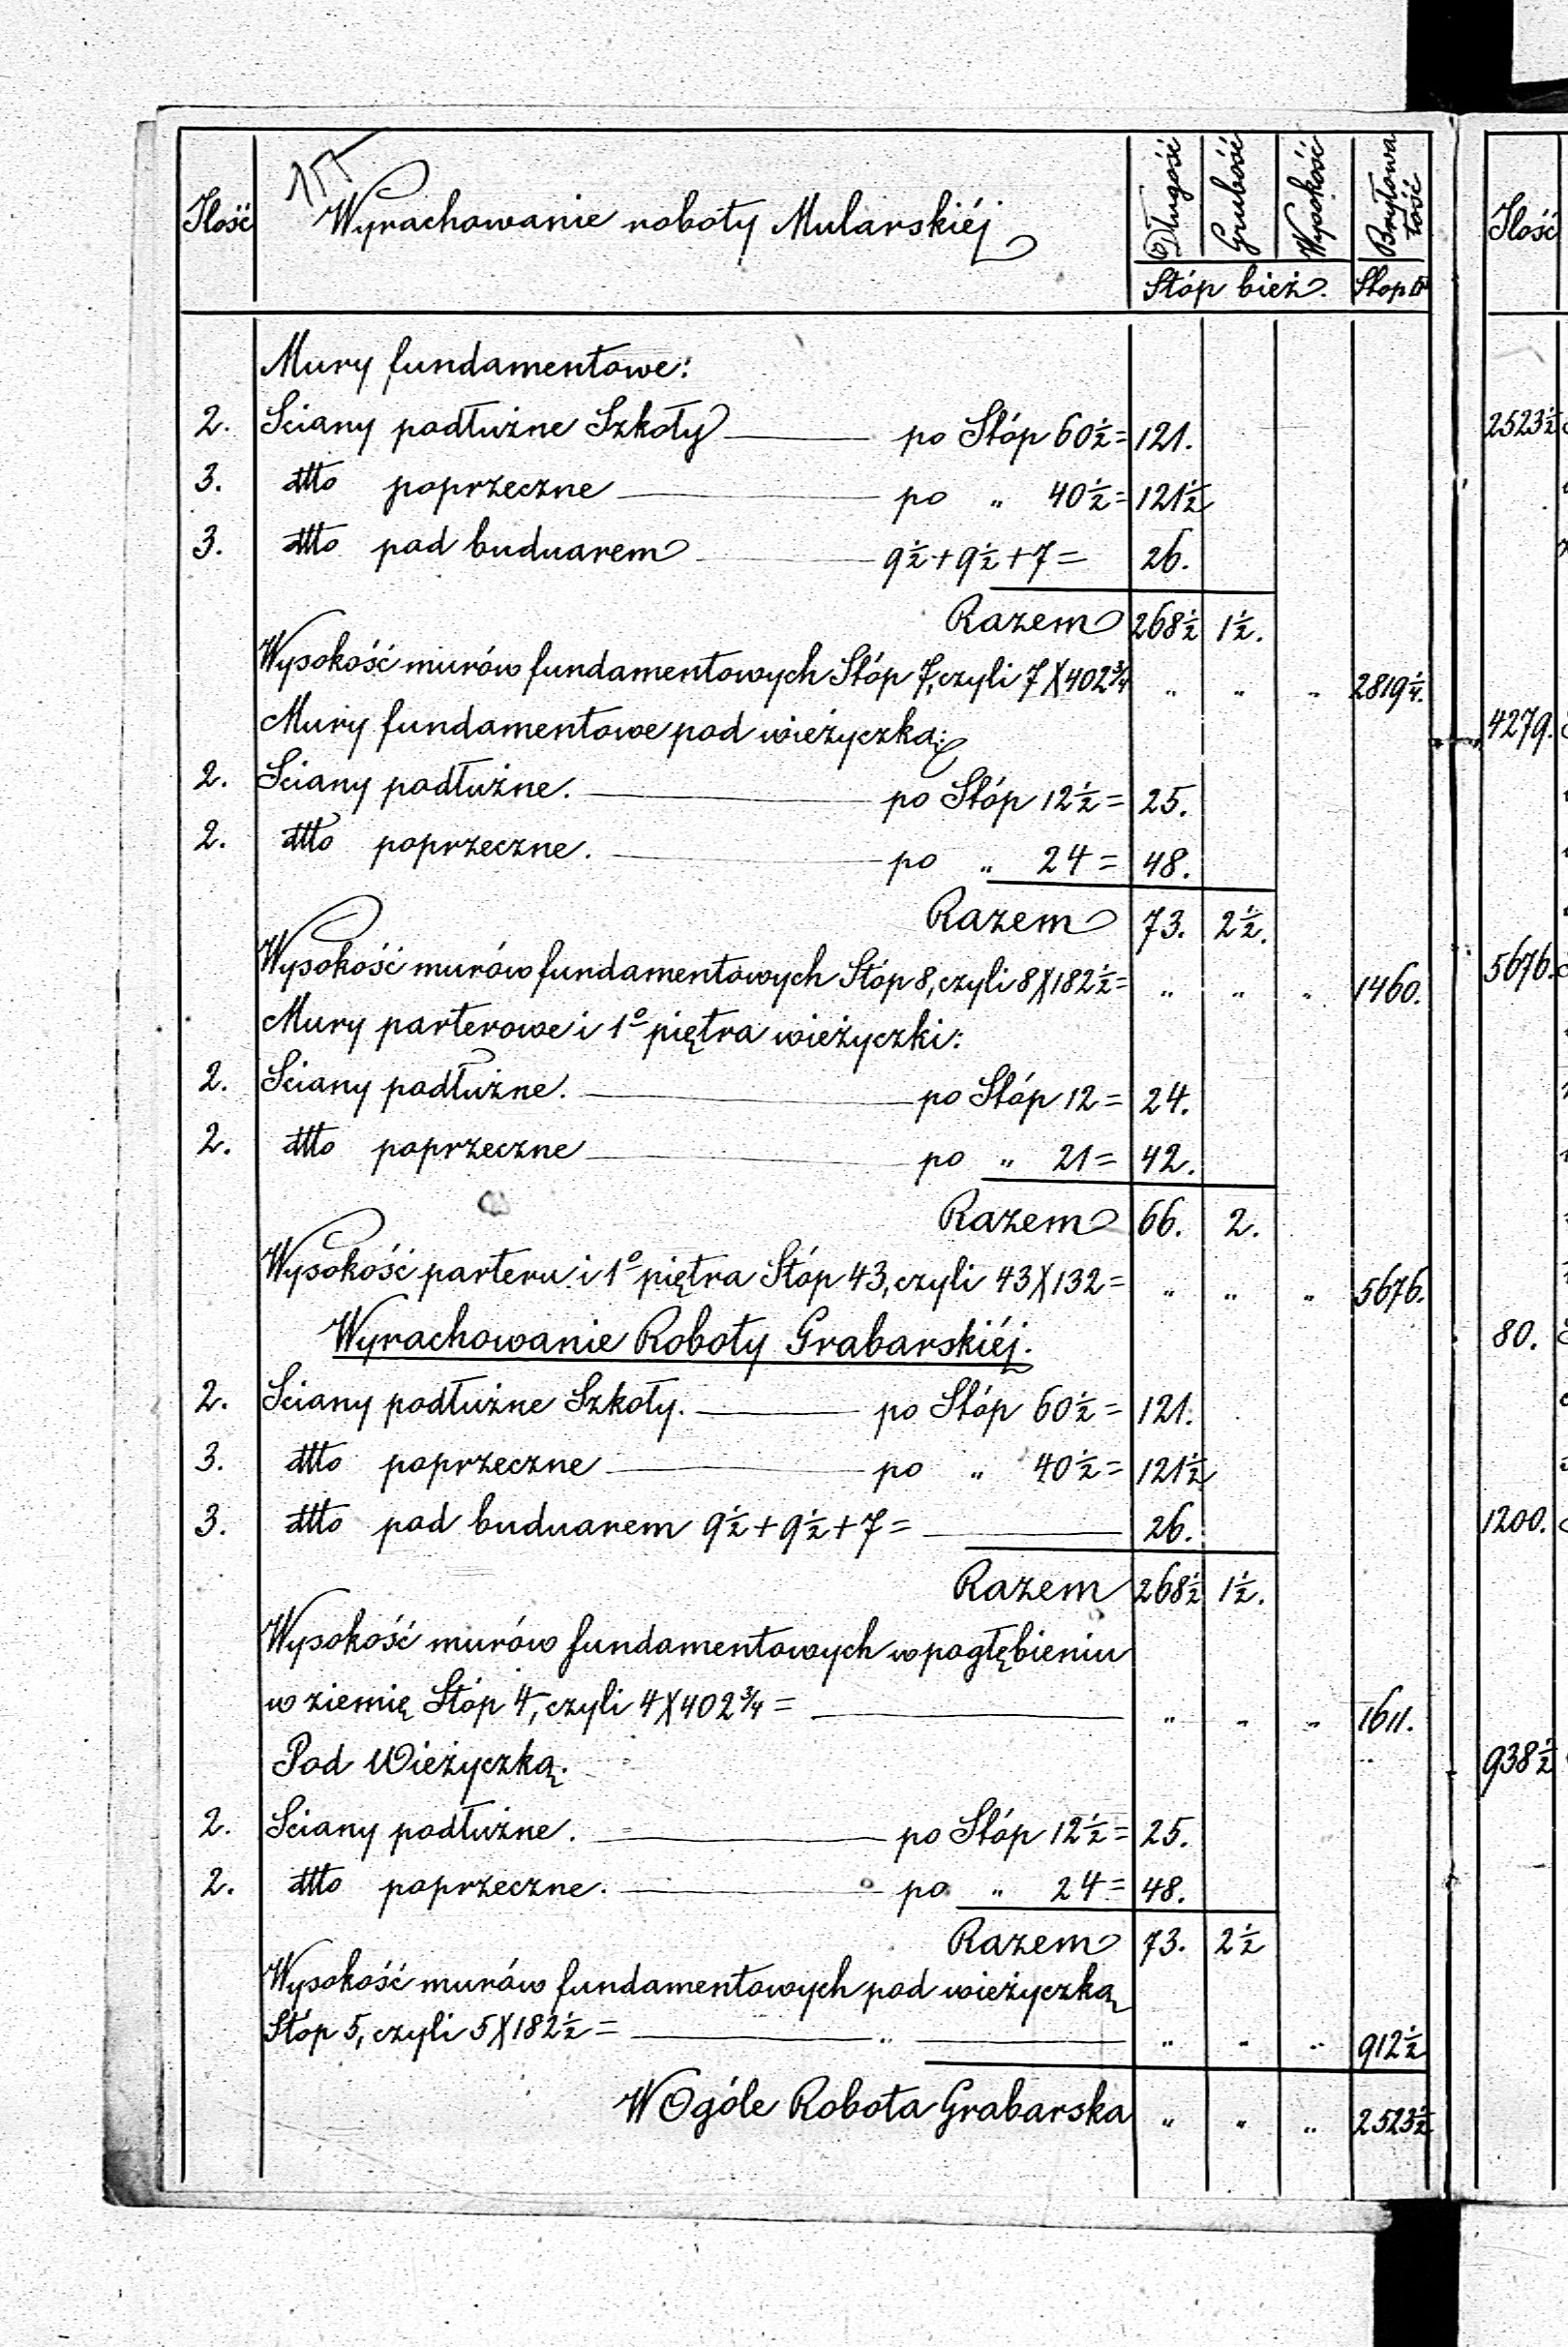 155
Ilość Wyrachowanie roboty Mularskiéj Długość Grubość Wysokość Bryłowatość
Stóp bież. Stop
Mury fundamentowe:
2. Sciany podłużne Szkoły po Stóp 60½= 121.
3. dtto poprzeczne po " 40½= 121½
3. dtto pod buduarem 9½+9½+7= 26.
Razem 268½ 1½.
Wysokość murów fundamentowych Stóp 7, czyli 7X402¾ " " " 2819¼.
Mury fundamentowe pod wieżyczką:
2. Sciany podłużne. po Stóp 12½= 25.
2. dtto poprzeczne. po " 24= 48.
Razem 73. 2½.
Wysokość murów fundamentowych Stóp 8, czyli 8X182½= " " " 1460.
Mury parterowe i 1º piętra wieżyczki:
2. Sciany podłużne. po Stóp 12= 24.
2. dtto poprzeczne po " 21= 42.
Razem 66. 2.
Wysokość parteru i 1º piętra Stóp 43, czyli 43X132= " " " 5676.
Wyrachowanie Roboty Grabarskiéj.
2. Sciany podłużne Szkoły. po Stóp 60½= 121.
3. dtto poprzeczne po " 40½= 121½
3. dtto pod buduarem 9½+9½+7= 26.
Razem 268½ 1½.
Wysokość murów fundamentowych w pogłębieniu
w ziemię Stóp 4, czyli 4X402¾= " " " 1611.
Pod Wieżyczką.
2. Sciany podłużne. po Stóp 12½= 25.
2. dtto poprzeczne. po " 24= 48.
Razem 73. 2½
Wysokość murów fundamentowych pod wieżyczką
Stóp 5, czyli 5X182½= " " " " 912½
W Ogóle Robota Grabarska " " " 2523½
Ilość
2523½
4279.
5676.
80.
1200.
938½